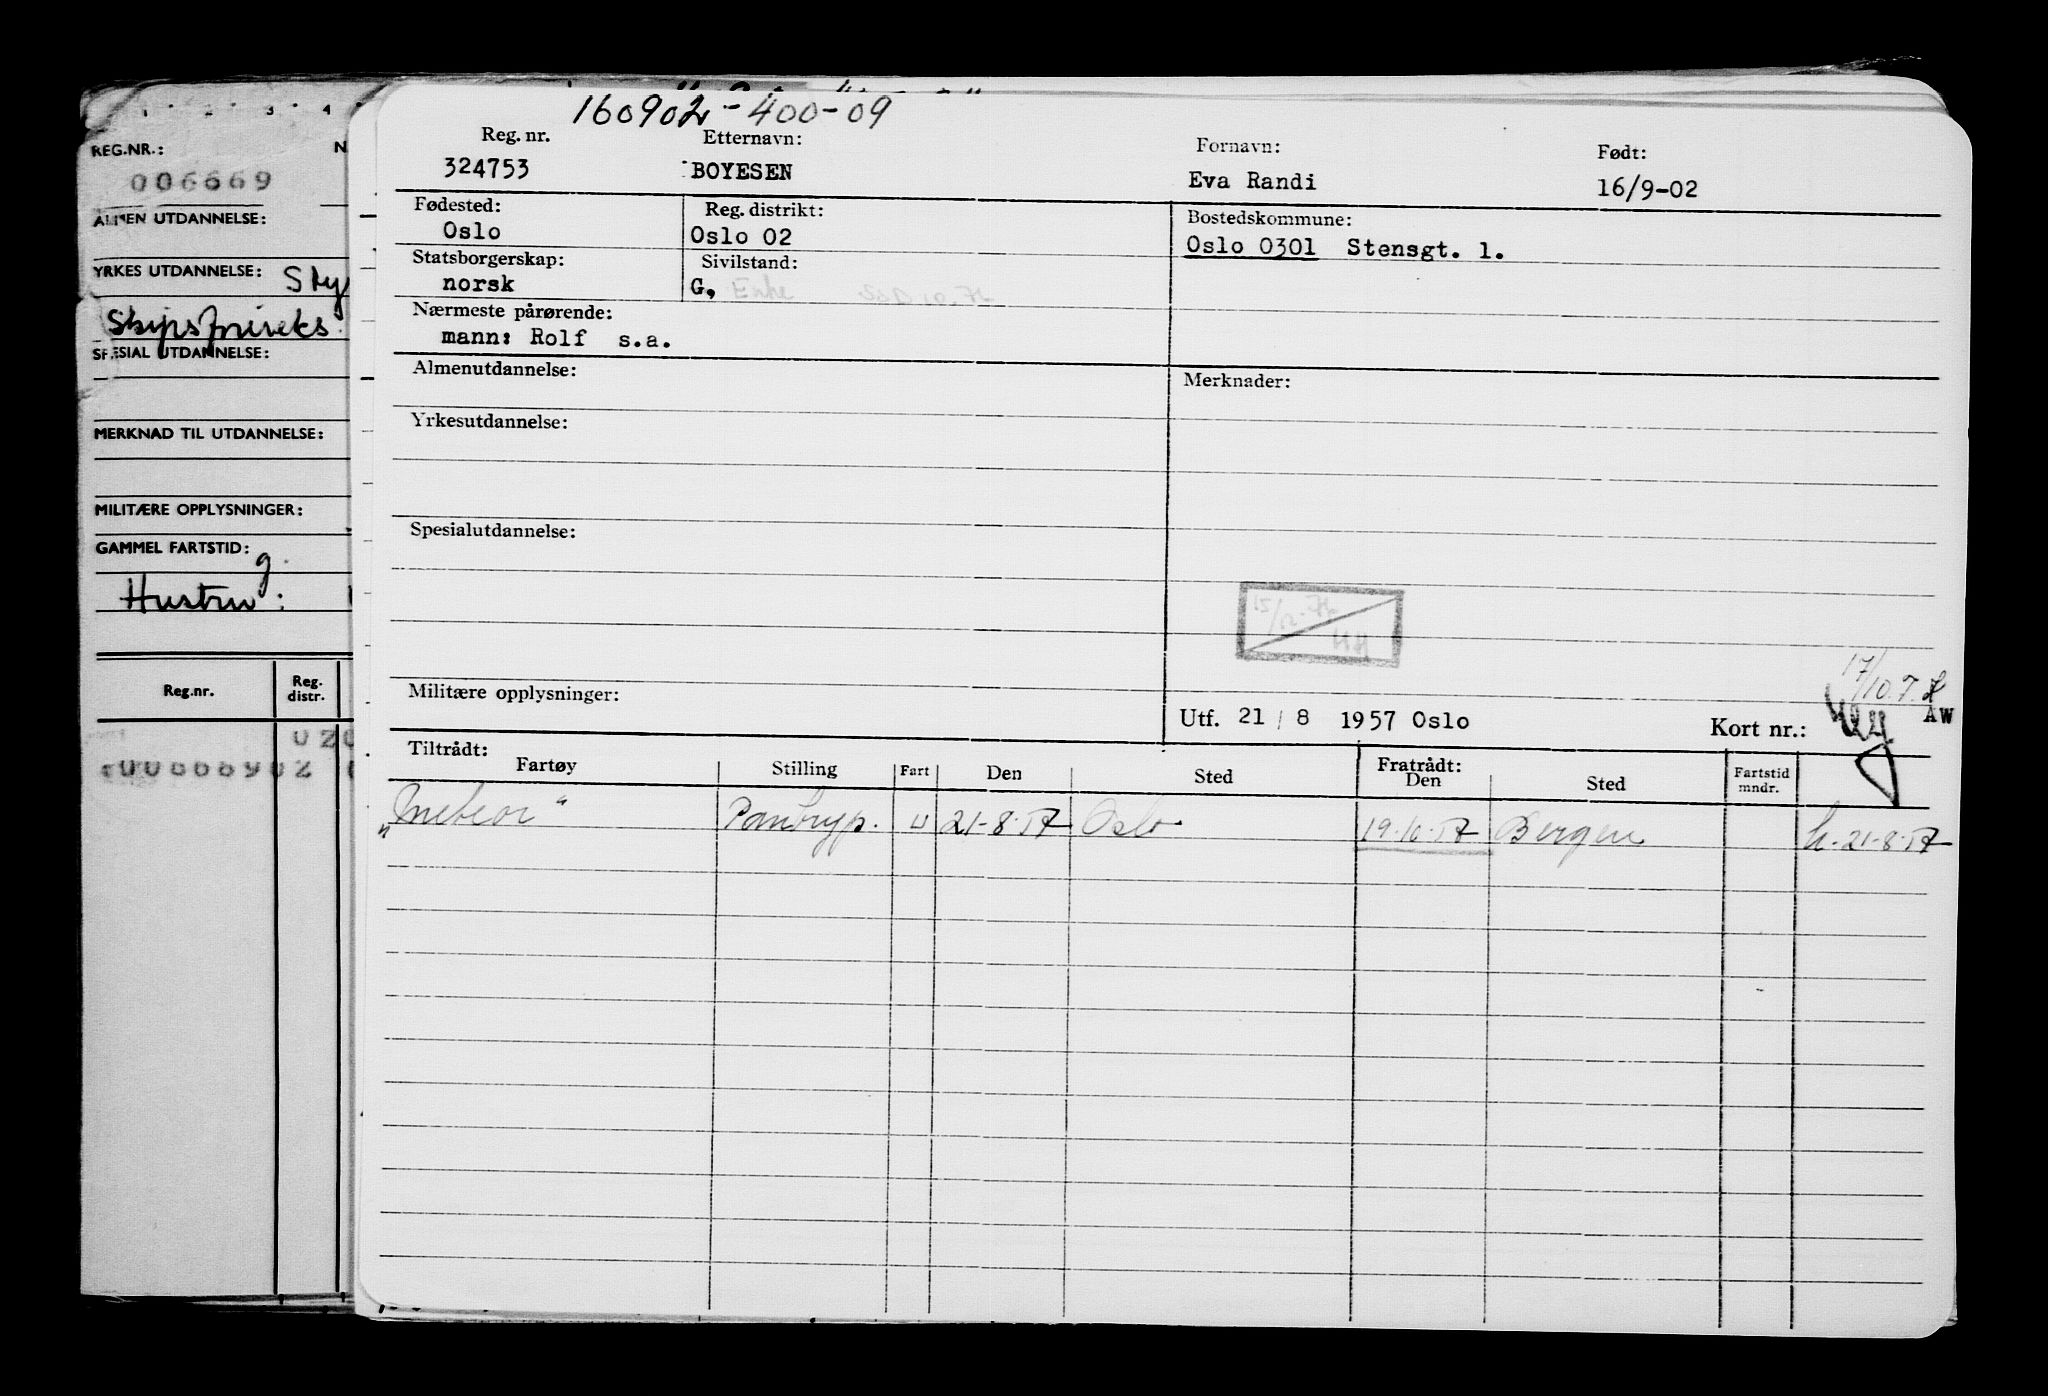 160902-400-09
Reg. nr. Etternavn: Fornavn: Født:
324753 BOYESEN Eva Randi 16/9-02
Fødested: Reg. distrikt: Bostedskommune:
Oslo Oslo 02 Oslo 0301 Stensgt. 1.
Statsborgerskap: Sivilstand:
norsk G, Enke
Nærmeste pårørende:
mann: Rolf s.a.
Almenutdannelse: Merknader:
Yrkesutdannelse:
Spesialutdannelse:
15/12-76
HH
17/10.72
Militære opplysninger:
Utf. 21 / 8 1957 Oslo Kort nr.: AW
Tiltrådt: Fratrådt:
Fartøy Stilling Fart Den Sted Den Sted Fartstid mndr.
"Meteor" Pantryp. U 21-8-57 Oslo 19-10-57 Bergen h. 21-8-57
1 2 3 4
REG.NR.: N
006669
ALMEN UTDANNELSE:
YRKES UTDANNELSE:
Skipsfureks.
SPESIAL UTDANNELSE:
MERKNAD TIL UTDANNELSE:
MILITÆRE OPPLYSNINGER:
GAMMEL FARTSTID:
g.
Hustru:
Reg.nr. Reg. distr.